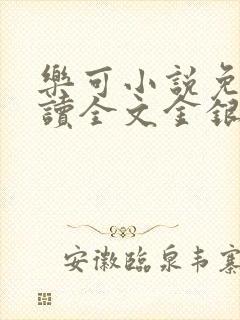 樂可小説免
讀全文金銀
安徽臨泉韦寨